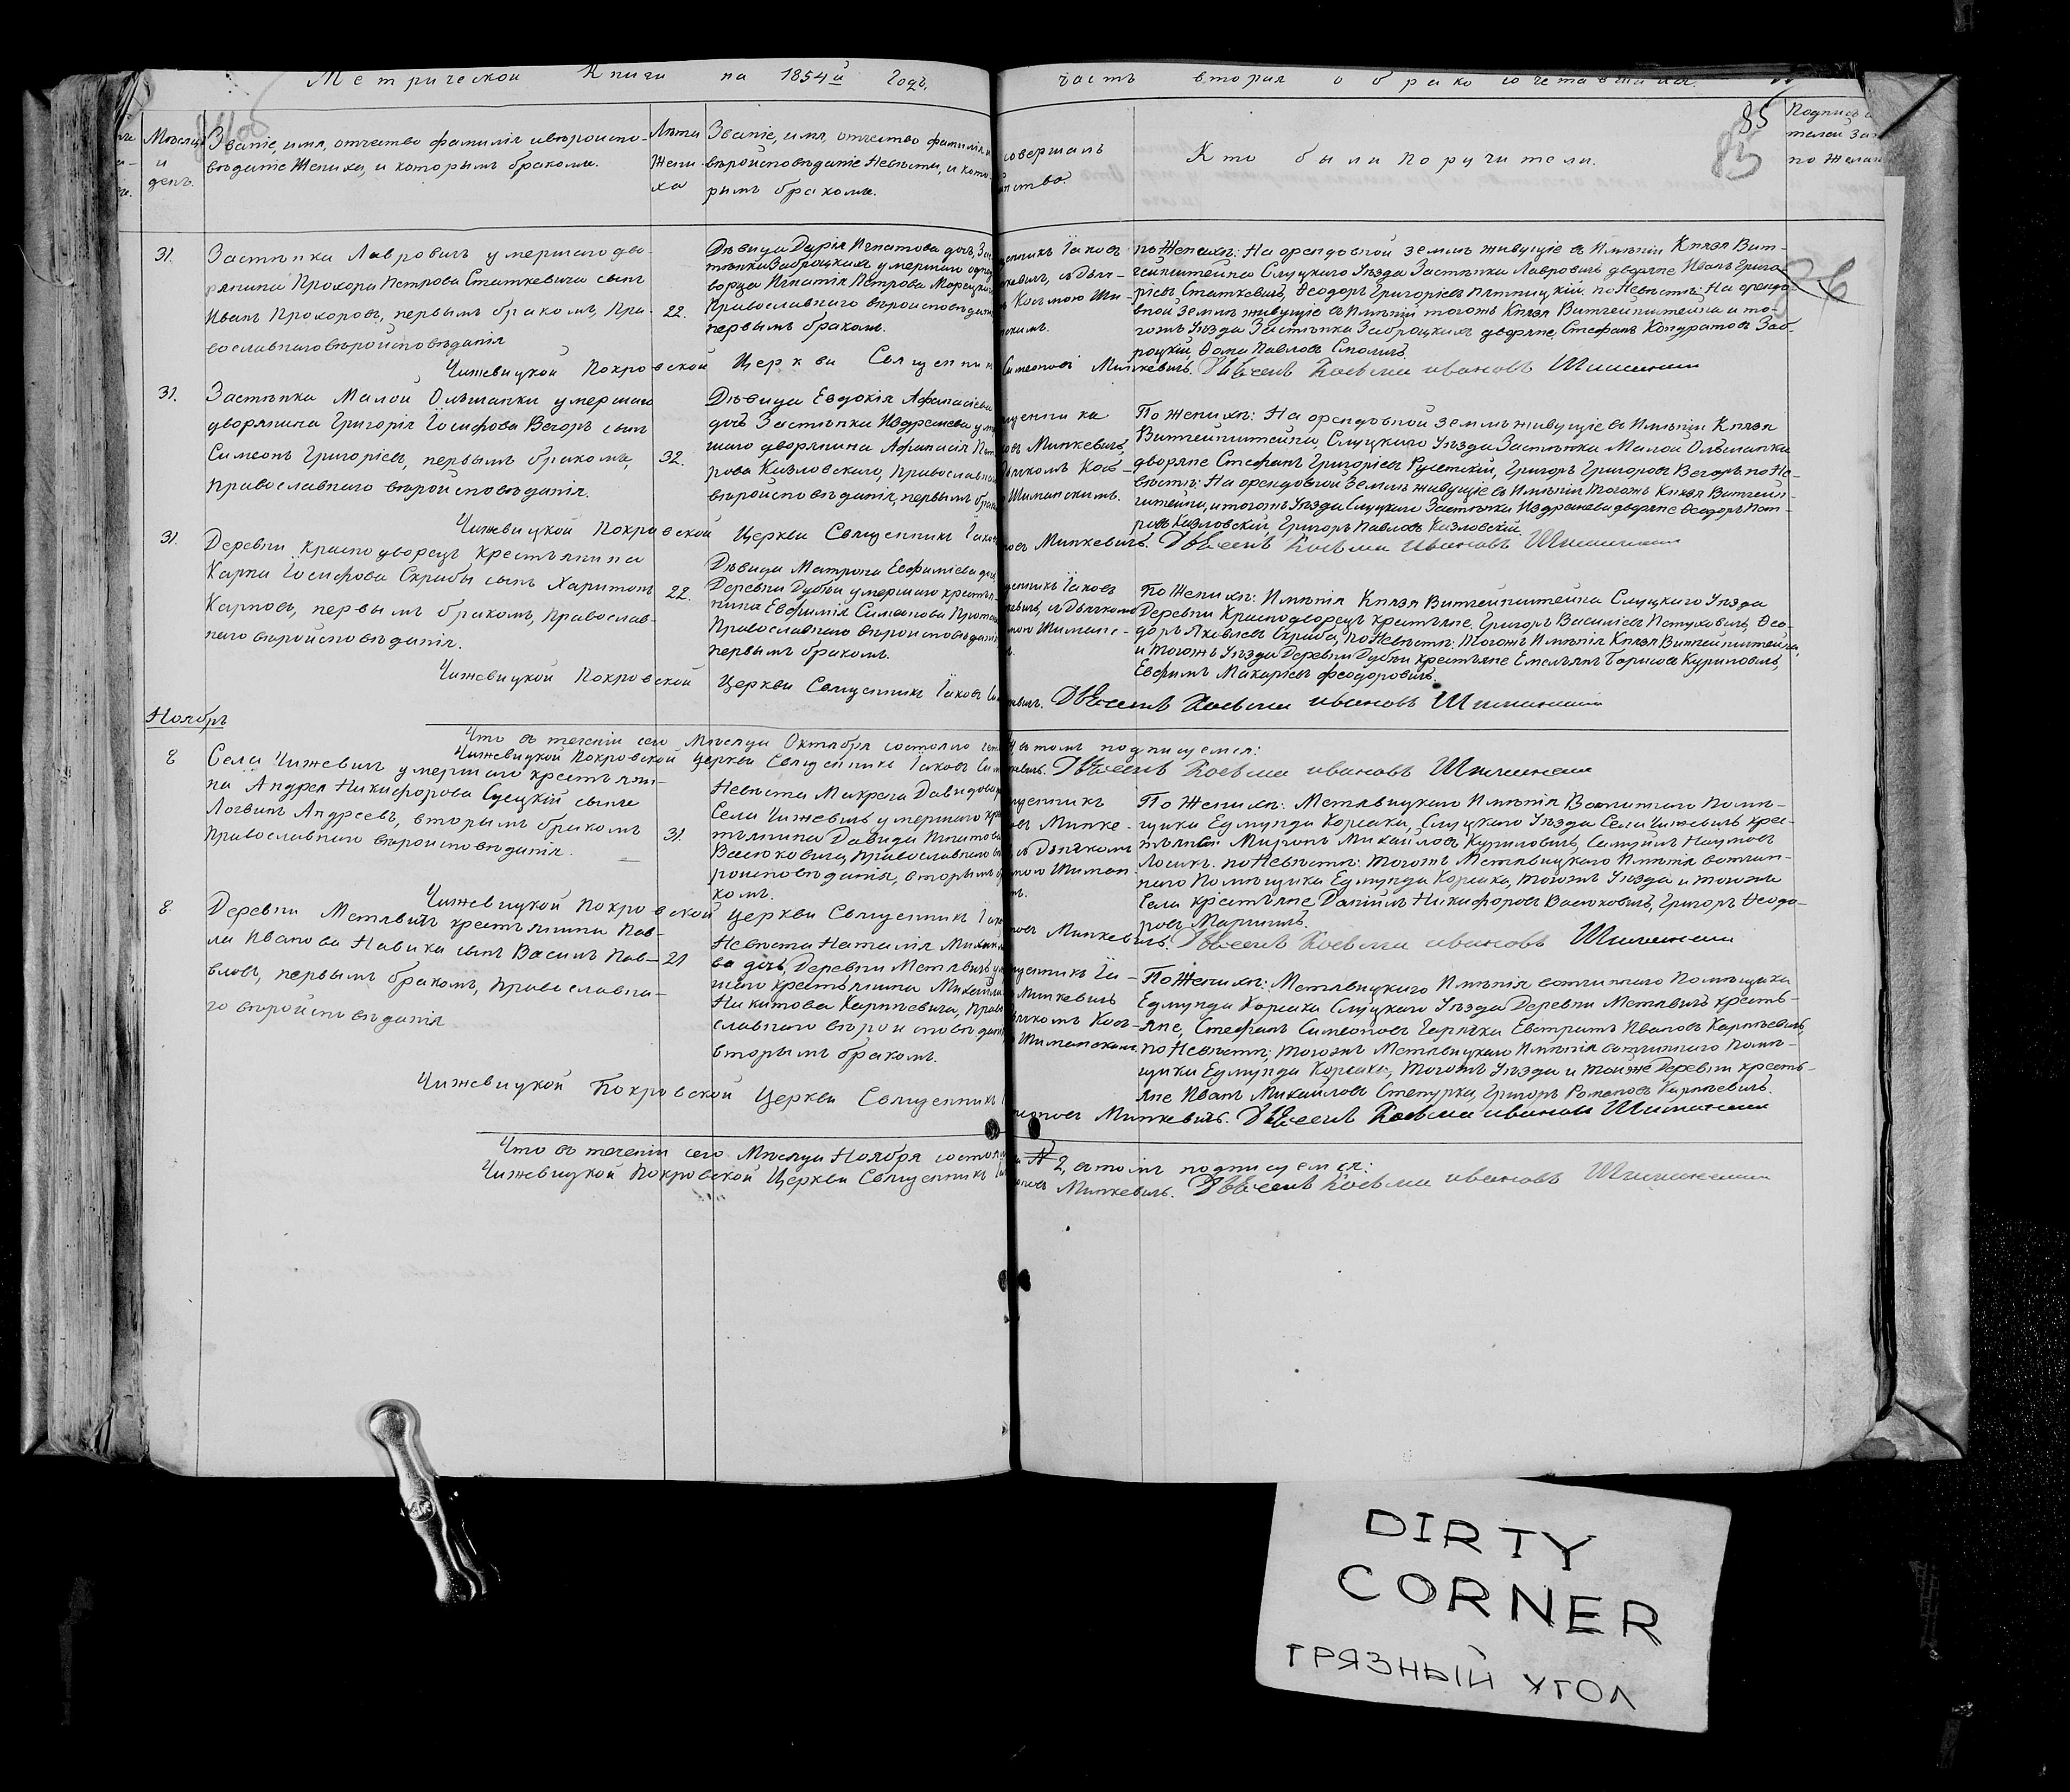 Метрической Книги на 1854й Годъ,
часть вторая о бракосочетавшихся.
85
Мѣсяцъ и день.
Званіе, имя, отчество фамилія и вѣроиспо-
вѣданіе Жениха, и которымъ бракомъ.
Лѣта
Жени-
ха
Званіе, имя, отчество фамилія и
вѣроисповѣданіе Невѣсты, и кото-
рымъ бракомъ.
совершалъ
Кто были поручители.
Подпись
по желан
31.
Застѣнка Лавровичъ умершаго дво-
рянина Прохора Петрова Статкевича сынъ
Иванъ Прохоровъ, первымъ бракомъ, Пра-
вославнаго вѣроисповѣданія
22.
Дѣвица Дарія Игнатова дочь, Зас
тѣнка Заброцкихъ умершаго однод
ворца Игнатія Петрова
Православнаго вѣроисповѣдан
первымъ бракомъ.
Іаковъ
съ Дьяч-
Косьмою Ши-
по Женихѣ: На арендовной землѣ живущіе въ Имѣніи Князя Вит-
генштейна Слуцкаго Уѣзда Застѣнка Лавровичъ дворяне Иванъ Григо-
ріевъ Статкевичъ, Ѳеодоръ Григоріевъ Пятницкій. по Невѣстѣ: На арендо-
вной землѣ живущіе въ Имѣніи тогожъ Князя Витгенштейна и то-
гожъ Уѣзда Застѣнка Заброцкихъ дворяне, Стефанъ Кондратовъ Заб-
роцкій, Ѳома Павловъ Смоличъ.
Чижевицкой Покровской Церкви Священник
Симеоновъ Минкевичъ. Дьячекъ Косьма Ивановъ Шиманский
31.
Застѣнка Малой Ольшанки умершаго
дворянина Григорія Іосифова Вегоръ сынъ
Симеонъ Григоріевъ, первымъ бракомъ,
Православнаго вѣроисповѣданія.
32.
Дѣвица Евдокія Афанасіева
дочь Застѣнка Издрешева уме
шаго дворянина Афанасія Пет
рова Казловскаго, Православна
вѣроисповѣданія, первымъ брак
Минкевичъ,
Шиманскимъ.
По Женихѣ: На арендовной землѣ живущіе въ Имѣніи Князя
Витгенштейна Слуцкаго Уѣзда Застѣнка Малой Ольшанки
дворяне Стефанъ Григоріевъ Русецкій, Григоръ Григоровъ Вегоръ. по Не-
вѣстѣ: На арендовной Землѣ живущіе въ Имѣніи тогожъ Князя Витген-
штейна, и тогожъ Уѣзда Слуцкаго Застѣнка Издрешева дворяне Ѳеодоръ Пет-
ровъ Казловскій, Григоръ Павловъ Казловскій.
Чижевицкой Покровской Церкви Священникъ Іаков
Минкевичъ. Дьячекъ Косьма Ивановъ Шиманский
31.
Деревни Краснодворецъ крестьянина
Карпа Іосифова Скрабы сынъ Харитонъ
Карповъ, первымъ бракомъ, Православ-
наго вѣроисповѣданія.
22.
Дѣвица Матрона Евфиміева доч
Деревни Дубеи умершаго крестья
нина Евфимія Симонова
Православнаго вѣроисповѣданія
первымъ бракомъ.
Іаковъ
съ Дьячкомъ
По Женихѣ: Имѣнія Князя Витгенштейна Слуцкаго Уѣзда
Деревни Краснодворецъ крестьяне, Григоръ Василіевъ Петуховичъ, Ѳео-
доръ Яковлевъ Скраба, по Невѣстѣ: тогожъ Имѣнія Князя Витгенштейна,
и тогожъ Уѣзда Деревни Дубеи крестьяне Емельянъ Борисовъ Куриловичъ,
Евфимъ Макаріевъ Феодоровичъ.
Чижевицкой Покровской Церкви Священникъ Іаковъ
Дьячекъ Косьма Ивановъ Шиманский
Ноябрь
Что въ теченіи сего Мѣсяца Октября состояло
въ томъ подписуемся:
Чижевицкой Покровской Церкви Священникъ Іаковъ
Дьячекъ Косьма Ивановъ Шиманский
8
Села Чижевичъ умершаго крестьяни-
на Андрея Никифорова Судецкій сынъ
Логвинъ Андреевъ, вторымъ бракомъ
Православнаго вѣроисповѣданія.
31.
Невѣста Макрена Давидова
Села Чижевичъ умершаго кре
тьянина Давида Игнатова
Васюковича, Православнаго вѣ
роисповѣданія, вторымъ бра
комъ.
Минке-
съ Дьячкомъ
По Женихѣ: Метявицкаго Имѣнія Вотчинаго Помѣ-
щика Едмунда Корсака, Слуцкаго Уѣзда Села Чижевичъ крес-
тьяне: Миронъ Михайловъ Куриловичъ, Самуилъ Наумовъ
Лосикъ. по Невѣстѣ: тогожъ Метявицкаго Имѣнія вотчин-
наго Помѣщика Едмунда Корсака, тогожъ Уѣзда и тогоже
Села крестьяне Даніилъ Никифоровъ Васюковичъ, Григоръ Ѳеодо-
ровъ Марчикъ.
Чижевицкой Покровской Церкви Священникъ
Минкевичъ. Дьячекъ Косьма Ивановъ Шиманский
8.
Деревни Метявичъ крестьянина Пав-
ла Иванова Новика сынъ Василъ Пав-
ловъ, первымъ бракомъ, Православна-
го вѣроисповѣданія
21
Невѣста Наталія Михайло
ва дочь, Деревни Метявичъ
шаго крестьянина Михайла
Никитова Карпѣевича, Право
славнаго вѣроисповѣдан
вторымъ бракомъ.
Минкевичъ
Шиманскимъ
По Женихѣ: Метявицкаго Имѣнія вотчиннаго Помѣщика
Едмунда Корсака Слуцкаго Уѣзда Деревни Метявичъ кресть-
яне, Стефанъ Симеоновъ Гарлука Евстратъ Ивановъ Карпѣевичъ,
по Невѣстѣ; тогожъ Метявицкаго Имѣнія вотчиннаго Помѣ-
щика Едмунда Корсака, тогожъ Уѣзда и тойже Деревни кресть-
яне Иванъ Михайловъ Стенурка, Григоръ Романовъ Карпѣевичъ.
Чижевицкой Покровской Церкви Священникъ
Минкевичъ. Дьячекъ Косьма Ивановъ Шиманский
Что въ теченіи сего Мѣсяца Ноября состоя
№ 2, въ томъ подписуемся:
Чижевицкой Покровской Церкви Священникъ
Минкевичъ. Дьячекъ Косьма Ивановъ Шиманский
DIRTY
CORNER
ГРЯЗНЫЙ УГОЛ